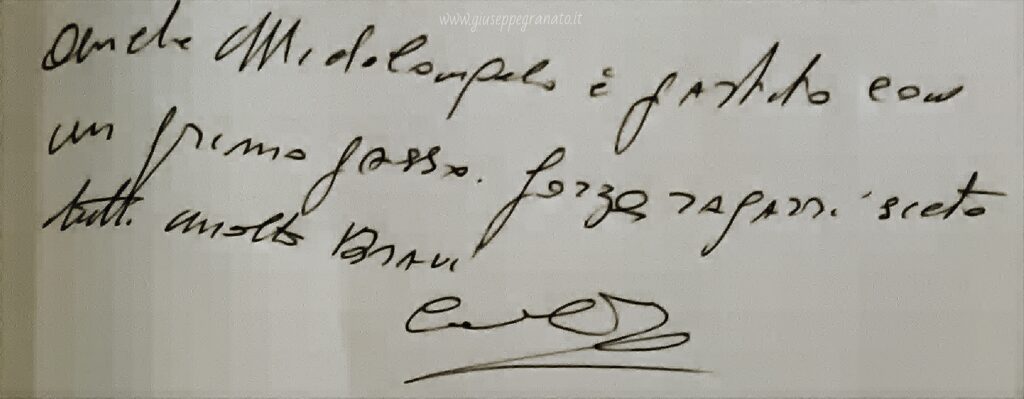 www.giuseppegranato.it
Anche Michelangelo è partito con
un primo passo. forza ragazzi siete
tutti molto Bravi